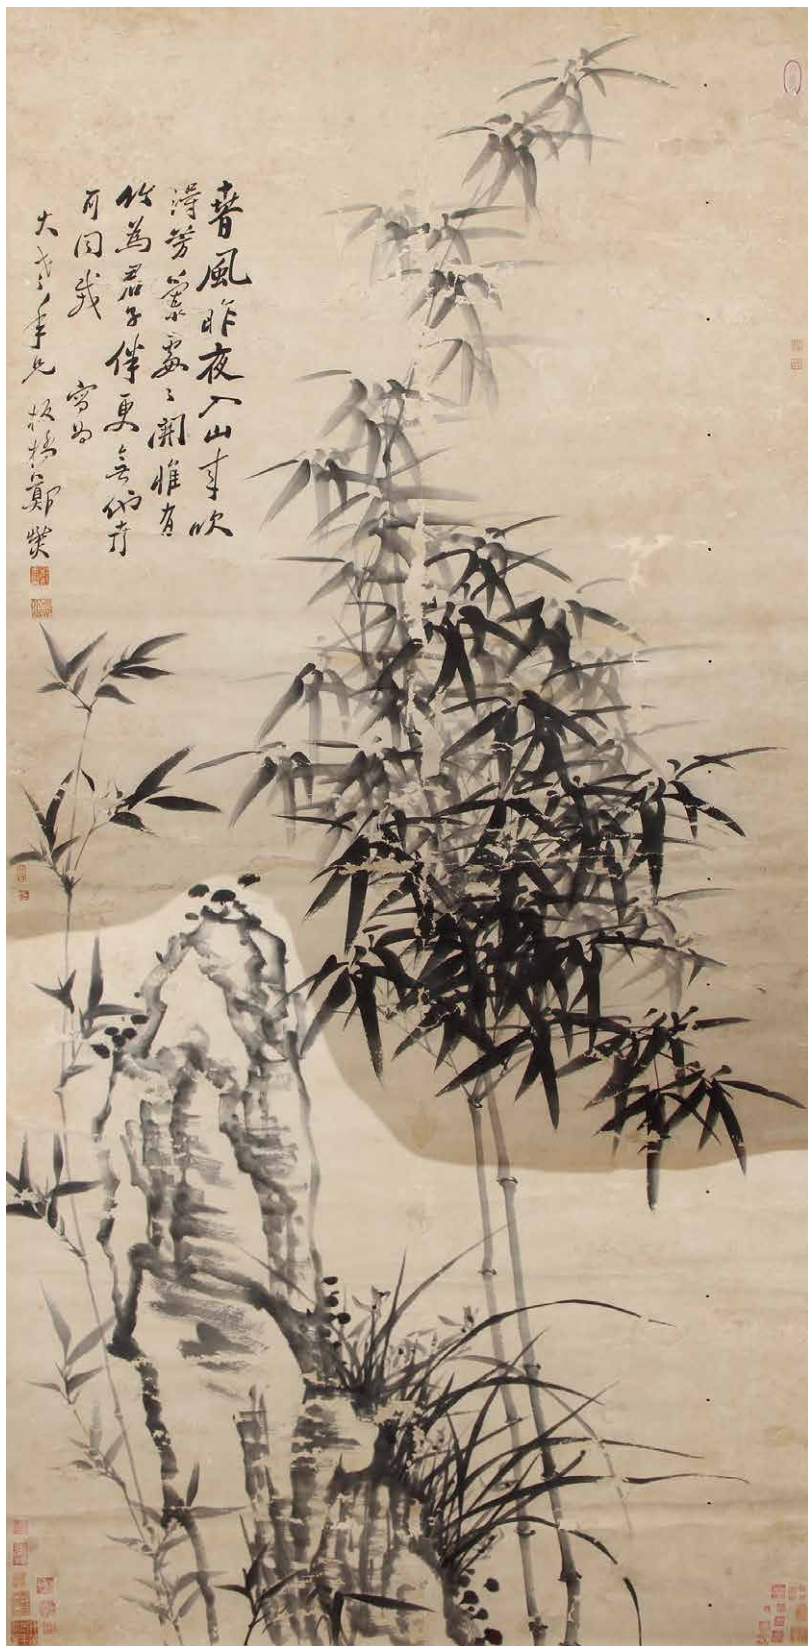 春風昨夜入山来吹
淂芳蘭處〻開惟有
竹為君子伴更無他卉
可同栽 寫為
大年兄 板橋鄭燮